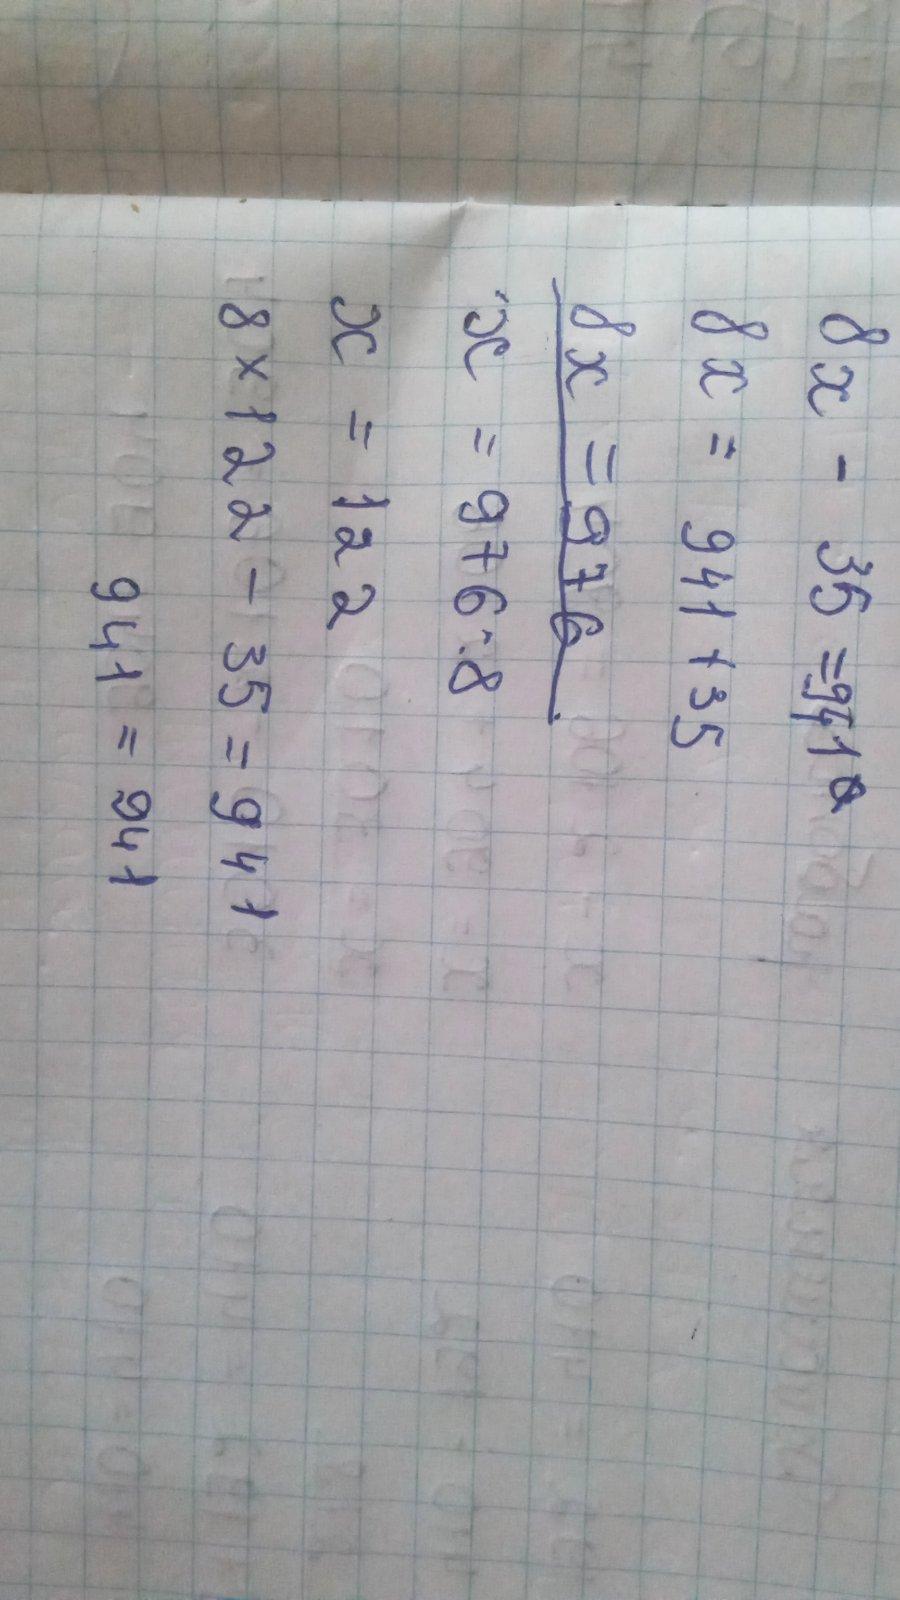 8x - 35 = 941
8x = 941 + 35
8x = 976
x = 976 : 8
x = 122
8 × 122 - 35 = 941
941 = 941